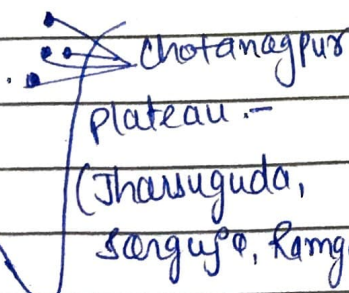 Chotanagpur
plateau :-
(Jharsuguda,
Sarguja, Ramg